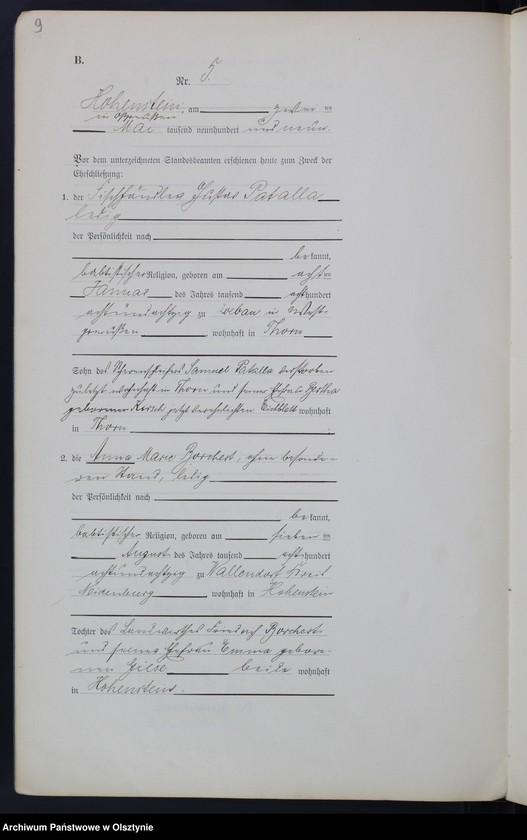 9
B.
Nr. 5.
Hohenstein, am
in Ostpreußen
Mai tausend neunhundert und neun.
Vor dem unterzeichneten Standesbeamten erschienen heute zum Zweck der
Eheschließung:
1. der Fischhändler Gustav Patalla
ledig
der Persönlichkeit nach
bekannt,
babtistischer Religion, geboren am achten
Januar des Jahres tausend achthundert
achtundachtzig zu Löbau in West-
preußen, wohnhaft in Thorn
Sohn des Samuel Patalla verstorben
zuletzt wohnhaft in Thorn und seiner Ehefrau Bertha
geborenen jetzt verehelichten wohnhaft
in Thorn
2. die Anna Marie Borchert, ohne besonde-
ren Stand, ledig
der Persönlichkeit nach
bekannt,
babtistischer Religion, geboren am sieben ten
August des Jahres tausend achthundert
achtundachtzig zu Wallendorf Kreis
Neidenburg, wohnhaft in Hohenstein
Tochter des Landwirthes Friedrich Borchert
und seiner Ehefrau Emma gebore-
nen beide wohnhaft
in Hohenstein.
Archiwum Państwowe w Olsztynie